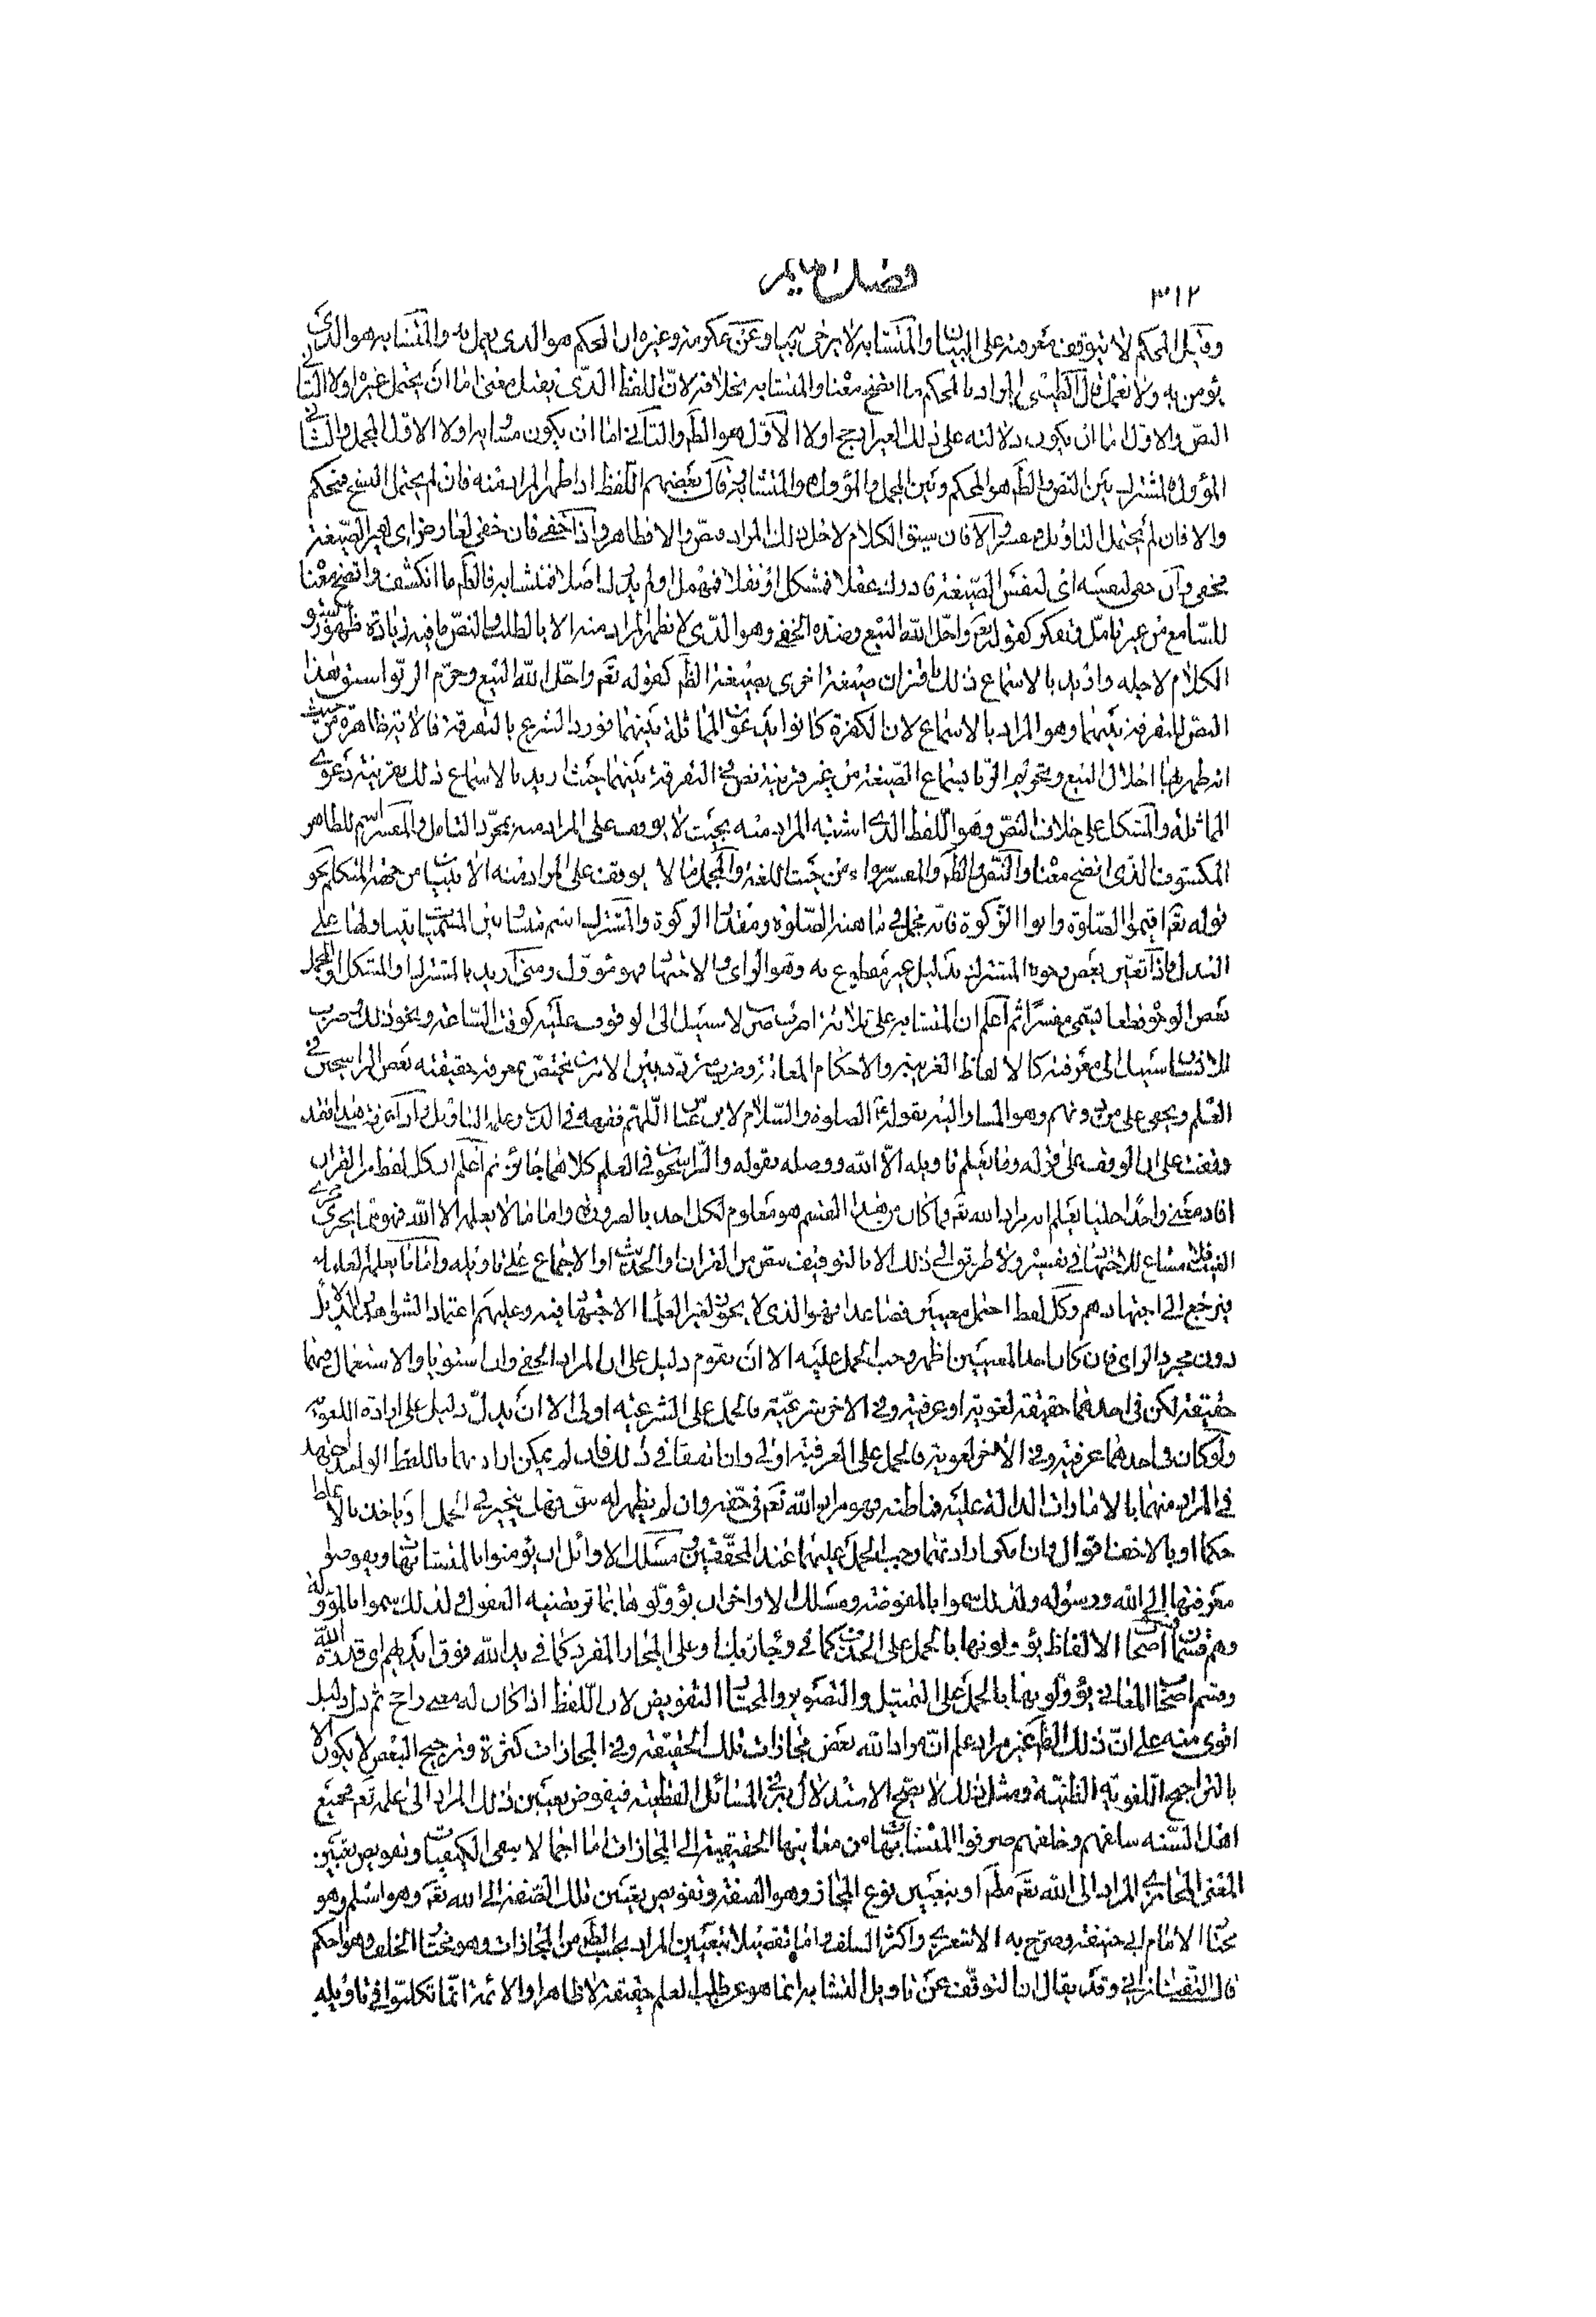 ٣١٢
وقيل المحكم لا يتوقف معرفته على البيان والمتشابه لا يرجى بيانه وعن عكرمة وغيره ان المحكم هو الذى يعمل به والمتشابه هو الذى
يؤمن به ولا يعمل قال الطيبى المراد بالمحكم ما اتضح معناه والمتشابه بخلافه لان اللفظ الذى يقبل معنى اما ان يحتمل غيره اولا الثانى
النص والاول اما ان يكون دلالته على ذلك الغير ارجح اولا الاول هو الظ والثانى اما ان يكون مساويه اولا الاول المجمل والثانى
المؤول فالمشترك بين النص والظ هو المحكم وبين المجمل والمؤول هو المتشابه وقال بعضهم اللفظ اذا ظهر المراد منه فان لم يحتمل النسخ فمحكم
والا فان لم يحتمل التاويل فمفسر والا فان سيق الكلام لاجل ذلك المراد فنص والا فظاهر واذا خفى فان خفى لعارض اى لغير الصيغة
فخفى وان خفى لنفسه اى لنفس الصيغة فادرك عقلا فمشكل او نقلا فمجمل او لم يدرك اصلا فمتشابه فالظ ما انكشف واتضح معناه
للسامع من غير تامل وتفكر كقوله تع واحل الله البيع وضده الخفى وهو الذى لا يظهر المراد منه الا بالطلب والنص ما فيه زيادة ظهور سيق
الكلام لاجله واريد بالاسماع ذلك باقتران صيغة اخرى بصيغة الظ كقوله تع واحل الله البيع وحرم الربوا سيق هذا
النص للتفرقة بينهما وهو المراد بالاسماع لان الكفرة كانوا يدعون المماثلة بينهما فورد الشرع بالتفرقة فالاية ظاهرة من حيث
انه ظهر بها احلال البيع وتحريم الربا بسماع الصيغة من غير قرينة نص فى التفرقة بينهما حيث اريد بالاسماع ذلك بقرينة دعوى
المماثلة والمشكل على خلاف النص وهو اللفظ الذى اشتبه المراد منه بحيث لا يوقف على المراد منه بمجرد التامل والمفسر اسم للظاهر
المكشوف الذى اتضح معناه والنص والظ والمفسر سواء من حيث اللغة والمجمل ما لا يوقف على المراد منه الا ببيان من جهة المتكلم نحو
قوله تع اقيموا الصلوة واتوا الزكوة فانه مجمل فى ماهية الصلوة ومقدار الزكوة والمشترك اسم متساو بين المسميات يتناولها على
البدل فاذا تعين بعض وجوه المشترك بدليل غير مقطوع به وهو الراى والاجتهاد فهو مؤول ومتى اريد بالمشترك او المشكل او المجمل
بعض الوجوه قطعا يسمى مفسرا ثم اعلم ان المتشابه على ثلاثة اضرب ضرب لا سبيل الى الوقوف عليه كوقت الساعة ونحو ذلك وضرب
للانسان سبيل الى معرفته كالالفاظ الغريبة والاحكام المغلقة وضرب متردد بين الامرين يختص بمعرفة حقيقته بعض الراسخين فى
العلم ويخفى على من دونهم وهو المشار اليه بقوله عليه الصلوة والسلام لابن عباس اللهم فقهه فى الدين وعلمه التاويل واذا عرفت هذا فقد
وقفت على ان الوقف على قوله وما يعلم تاويله الا الله ووصله بقوله والراسخون فى العلم كلاهما جائز ثم اعلم ان كل لفظ من القران
افاد معنى واحدا جليا يعلم انه مراد الله تع فما كان من هذا القسم هو معلوم لكل احد بالضرورة واما ما لا يعلمه الا الله فهو مما يجرى مجرى
الغيب فلا مساغ للاجتهاد فى تفسيره ولا طريق الى ذلك الا بالتوقيف بنص من القران والحديث او الاجماع على تاويله واما ما يعلمه العلماء
فيرجع الى اجتهادهم وكل لفظ احتمل معنيين فصاعدا فهو الذى لا يجوز لغير العلماء الاجتهاد فيه وعليهم اعتماد الشواهد والدلائل
دون مجرد الراى فان كان احد المعنيين اظهر وجب الحمل عليه الا ان يقوم دليل على ان المراد الخفى وان استويا والاستعمال فيهما
حقيقة لكن فى احدهما حقيقة لغوية او عرفية وفى الاخر شرعية فالحمل على الشرعية اولى الا ان يدل دليل على ارادة اللغوية
ولو كان فى احدهما عرفية وفى الاخر لغوية فالحمل على العرفية اولى وان اتفقا فى ذلك فان لم يمكن ارادتهما باللفظ الواحد اجتهد
فى المراد منهما بالامارات الدالة عليه فما ظنه فهو مراد الله تع فى حقه وان لم يظهر له شئ فهل يتخير فى الحمل او ياخذ بالاغلظ
حكما او بالاخف اقوال وان امكن ارادتهما وجب الحمل عليهما عند المحققين ومسلك الاوائل ان يؤمنوا بالمتشابهات ويفوضوا
معرفتها الى الله ورسوله ولذلك سموا بالمفوضة ومسلك الاواخر ان يؤولوها بما ترتضيه العقول ولذلك سموا بالمؤولة
وهم قسمان قسم اصحاب الالفاظ يؤولونها بالحمل على الحذف كما فى وجاء ربك وعلى المجاز المفرد كما فى يد الله فوق ايديهم اى قدرة الله
وقسم اصحاب المعانى يؤولونها بالحمل على التمثيل والتصوير والمختار التفويض لان اللفظ اذا كان له معنى راجح ثم دل دليل
اقوى منه على ان ذلك الظ غير مراد علم ان مراد الله بعض مجازات تلك الحقيقة وفى المجازات كثرة وترجيح البعض لا يكون الا
بالتراجيح اللغوية الظنية ومثل ذلك لا يصح الاستدلال به فى المسائل القطعية فيفوض تعيين ذلك المراد الى علمه تع فجميع
اهل السنة سلفهم وخلفهم صرفوا المتشابهات من معانيها الحقيقية الى المجازات اما اجمالا بنفى الكيفيات وتفويض تعيين
المعنى المجازى المراد الى الله تع مط او بتعيين نوع المجاز وهو الصفة وتفويض تعيين تلك الصفة الى الله تع وهو اسلم وهو
مختار الامام ابى حنيفة وصرح به الاشعرى واكثر السلف واما تفصيلا بتعيين المراد بحسب الظ من المجازات وهو مختار الخلف وهو احكم
قال التفتازانى وقد يقال ان التوقف عن تاويل المتشابه انما هو عن طلب العلم حقيقة لا ظاهرا والائمة انما تكلموا فى تاويله